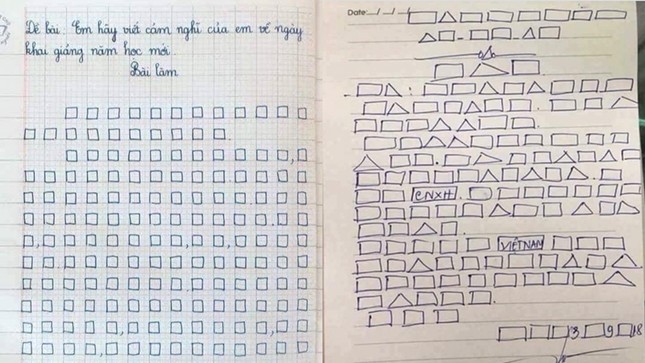 Đề bài. Em hãy viết cảm nghĩ của em về ngày
khai giảng năm học mới.
Bài làm
Date: / / /
CNXH
VIETNAM
3 9 18